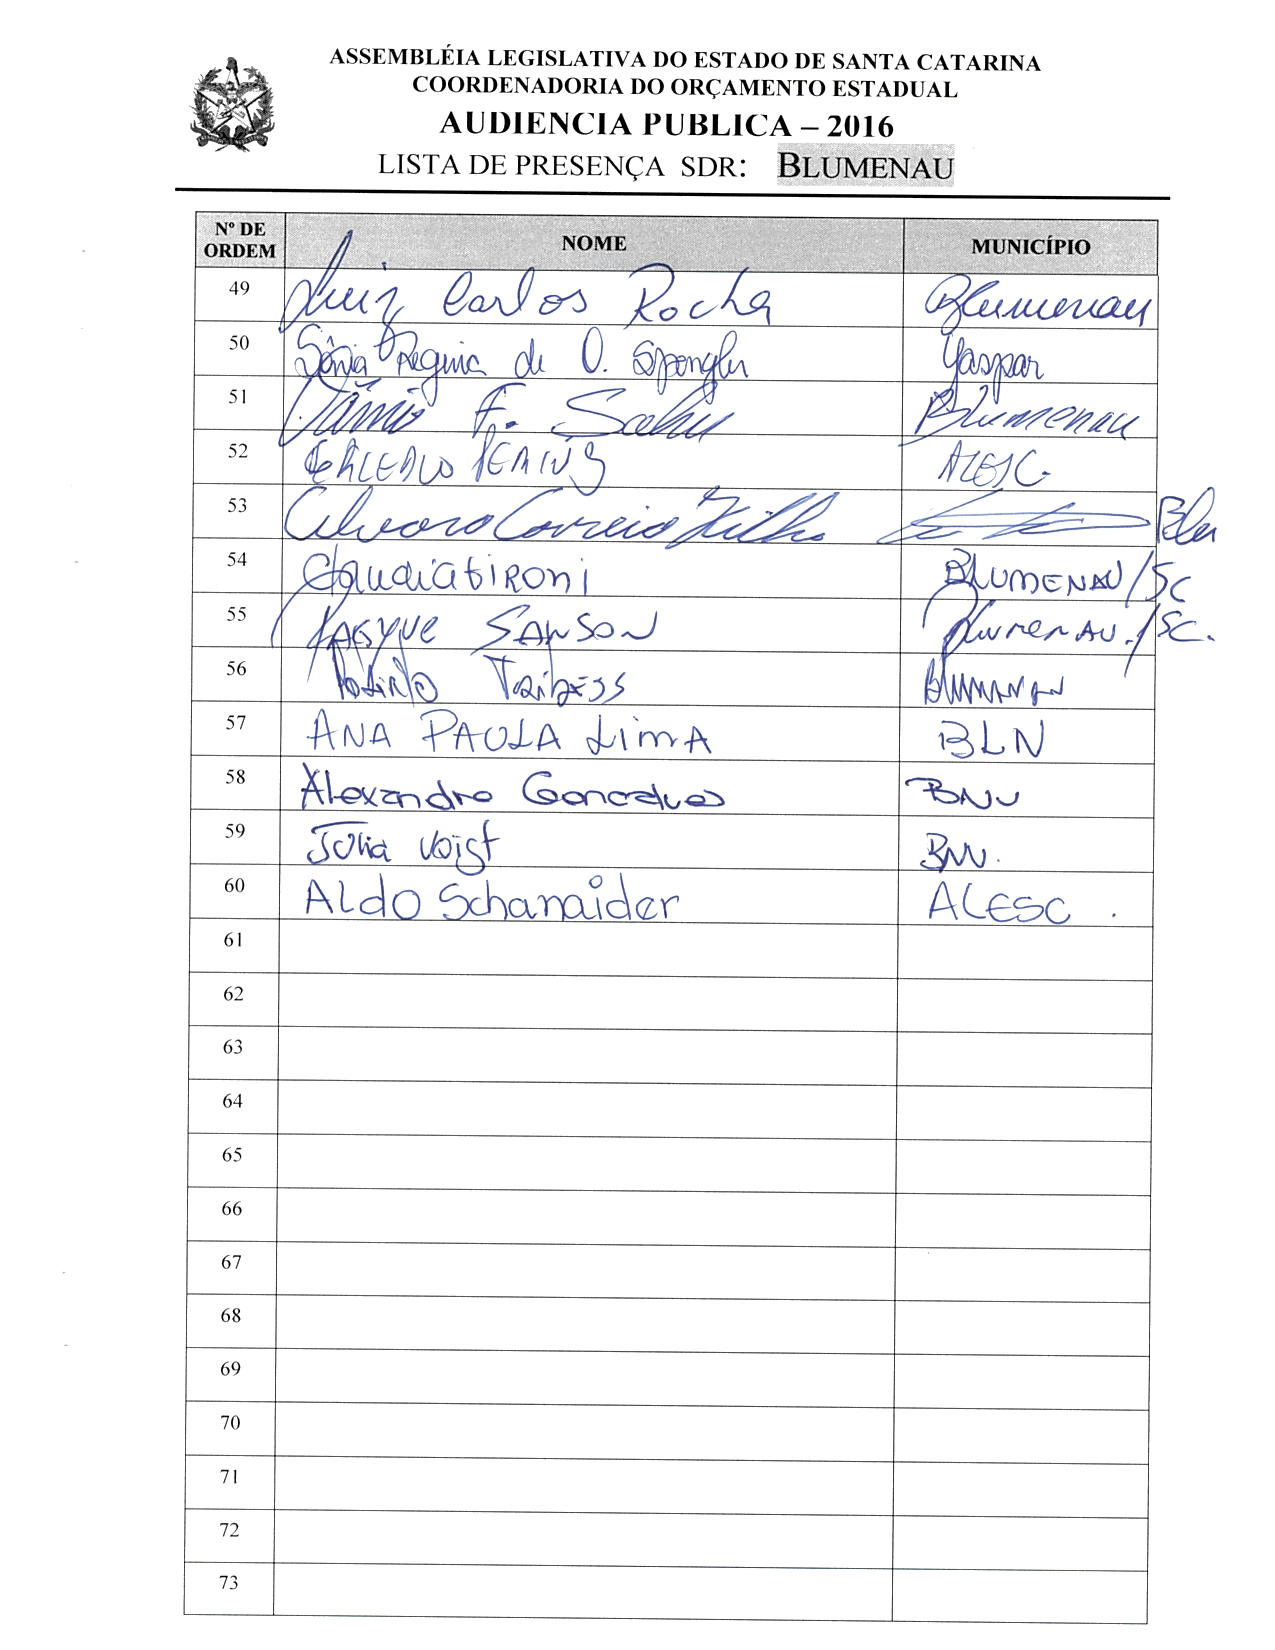 ASSEMBLÉIA LEGISLATIVA DO ESTADO DE SANTA CATARINA
COORDENADORIA DO ORÇAMENTO ESTADUAL
AUDIENCIA PUBLICA – 2016
LISTA DE PRESENÇA SDR: BLUMENAU
Nº DE ORDEM NOME MUNICÍPIO
49 Luiz Carlos Rocha Blumenau
50 Sônia Regina de O. Spengler Gaspar
51 F. Blumenau
52 ALESC
53 Alvaro Correia Filho Blu
54 Claudia Gironi BLUMENAU/SC
55 SANSON Blumenau/SC.
56 BLUMENAU
57 ANA PAULA LimA BLN
58 Alexandre Goncalves BNU
59 Julia Voigt BNU.
60 ALDO Schanaider ALESC.
61
62
63
64
65
66
67
68
69
70
71
72
73